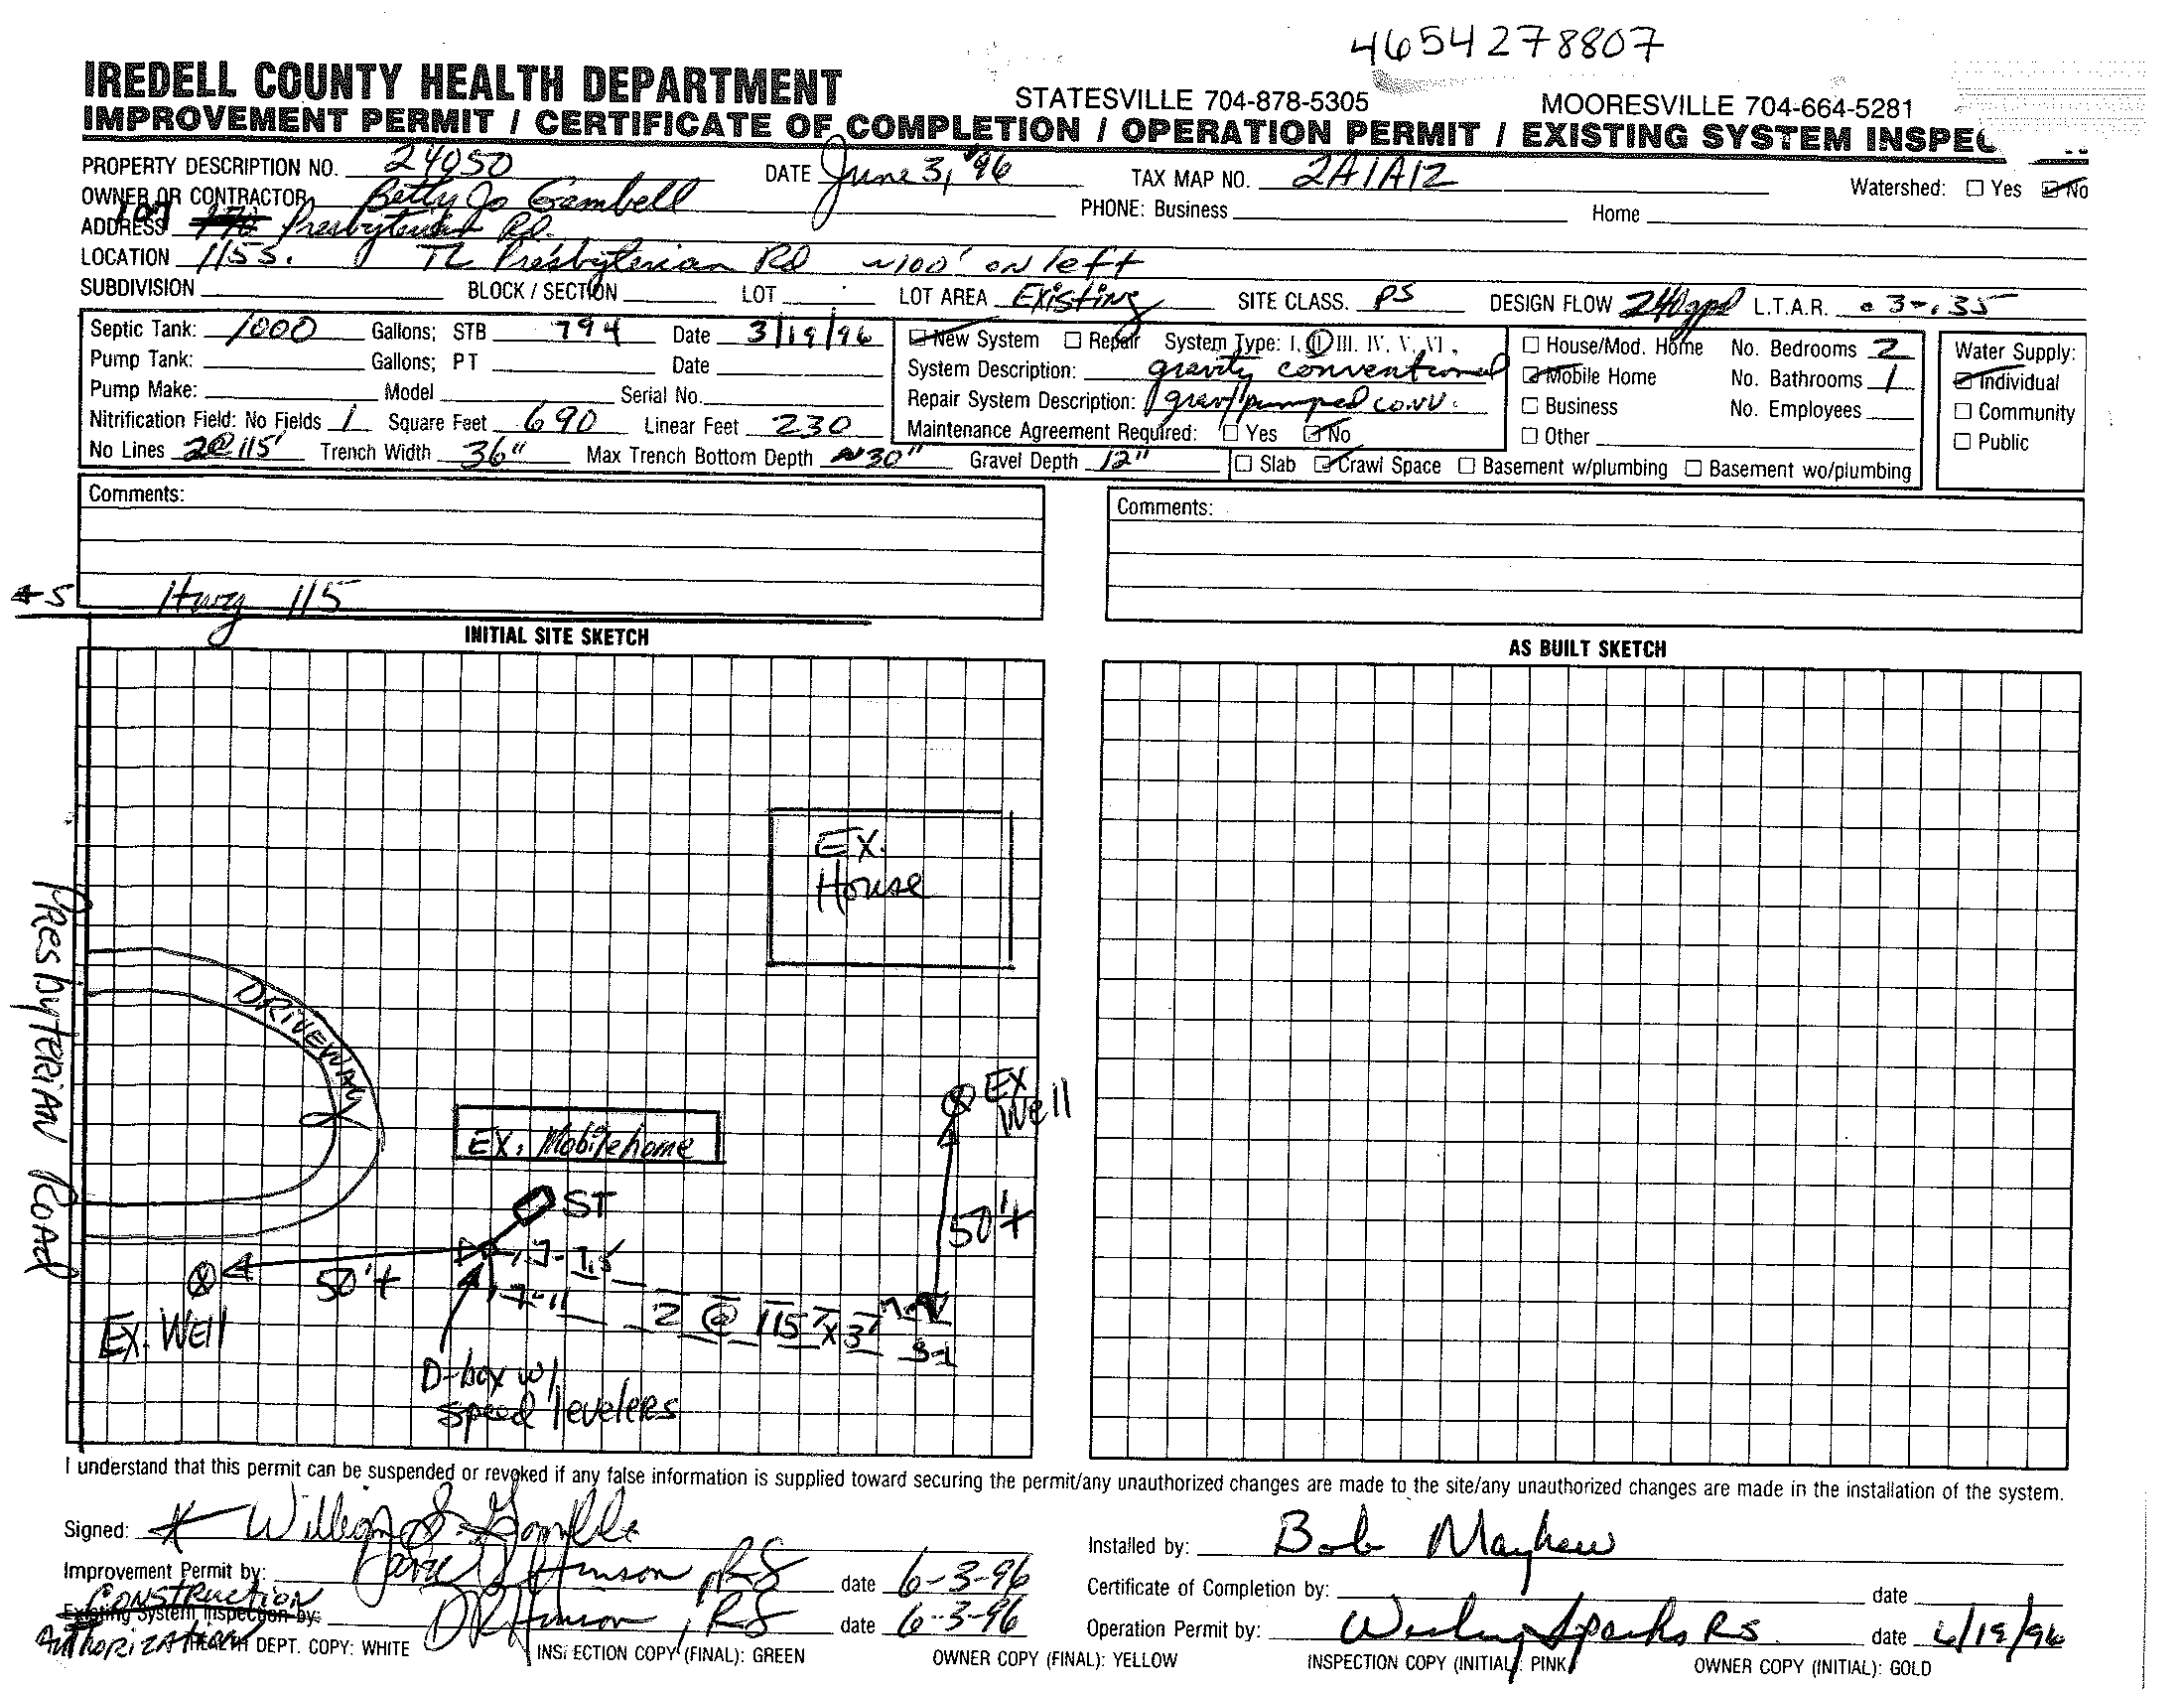 4654278807
IREDELL COUNTY HEALTH DEPARTMENT
STATESVILLE 704-878-5305 MOORESVILLE 704-664-5281
IMPROVEMENT PERMIT / CERTIFICATE OF COMPLETION / OPERATION PERMIT / EXISTING SYSTEM INSPEC
PROPERTY DESCRIPTION NO. 24050 DATE June 3, '96 TAX MAP NO. 2A1A12 Watershed: Yes No
OWNER OR CONTRACTOR Betty Jo Gambell PHONE: Business Home
ADDRESS 107 Presbyterian Rd.
LOCATION 115 S. TL Presbyterian Rd ~100' on left
SUBDIVISION BLOCK / SECTION LOT LOT AREA Existing SITE CLASS. PS DESIGN FLOW 240gpd L.T.A.R. .3-.35
Septic Tank: 1000 Gallons; STB 794 Date 3/19/96
Pump Tank: Gallons; PT Date
Pump Make: Model Serial No.
Nitrification Field: No Fields 1 Square Feet 690 Linear Feet 230
No Lines 2@115' Trench Width 36" Max Trench Bottom Depth ~30" Gravel Depth 12"
New System Repair System Type: I, II, III, IV, V, VI,
System Description: gravity conventional
Repair System Description: grav/pumped conv.
Maintenance Agreement Required: Yes No
House/Mod. Home No. Bedrooms 2
Mobile Home No. Bathrooms 1
Business No. Employees
Other
Slab Crawl Space Basement w/plumbing Basement wo/plumbing
Water Supply:
Individual
Community
Public
Comments:
Comments:
Hwy 115
INITIAL SITE SKETCH
AS BUILT SKETCH
Ex.
House
Presbyterian Road
DRIVEWAY
EX. Mobilehome
EX
Well
ST
50'+
50'+
Ex. Well
2 @ 115' x 3'
D-box w/
speed levelers
I understand that this permit can be suspended or revoked if any false information is supplied toward securing the permit/any unauthorized changes are made to the site/any unauthorized changes are made in the installation of the system.
Signed: William S. Gamble
Improvement Permit by: Hinson, RS date 6-3-96
CONSTRUCTION
Existing System Inspection by: DR Hinson, RS date 6-3-96
AUTHORIZATION
Installed by: Bob Mayhew
Certificate of Completion by: date
Operation Permit by: Wesley Sparks RS date 6/19/96
DEPT. COPY: WHITE INSPECTION COPY (FINAL): GREEN OWNER COPY (FINAL): YELLOW INSPECTION COPY (INITIAL): PINK OWNER COPY (INITIAL): GOLD